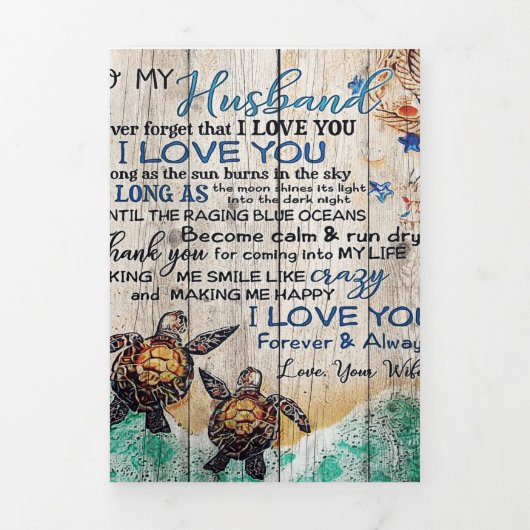 O MY
Husband
ver forget that I LOVE YOU
I LOVE YOU
ong as the sun burns in the sky
LONG AS the moon shines its light
into the dark night
NTIL THE RAGING BLUE OCEANS
Become calm & run dry
hank you for coming into MY LIFE
KING ME SMILE LIKE crazy
and MAKING ME HAPPY
I LOVE YOU
Forever & Alway
Love, Your Wife